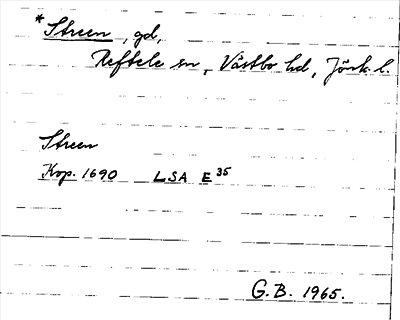 * Streen, gd,
Reftele sn, Västbo hd, Jönk. l.
Streen
Kop. 1690 LSA E 35
G.B. 1965.